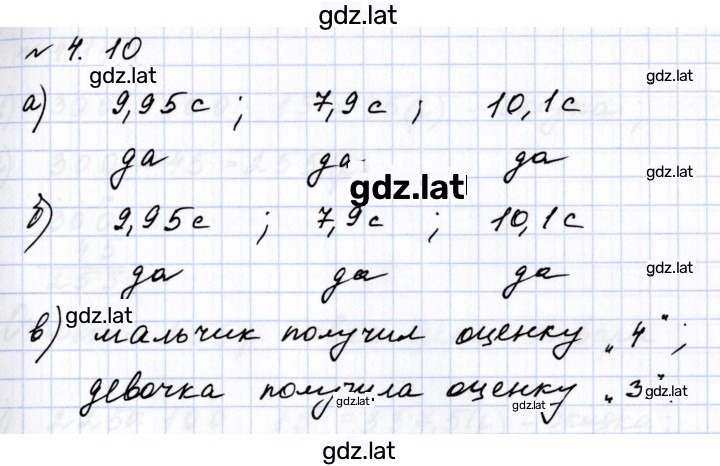 gdz.lat
№ 4.10
gdz.lat
gdz.lat
а) 9,95с; 7,9с; 10,1с
да да да
gdz.lat
gdz.lat
б) 9,95с; 7,9с; 10,1с
да да да
gdz.lat
gdz.lat
в) мальчик получил оценку „4";
девочка получила оценку „3".
gdz.lat
gdz.lat
gdz.lat
gdz.lat